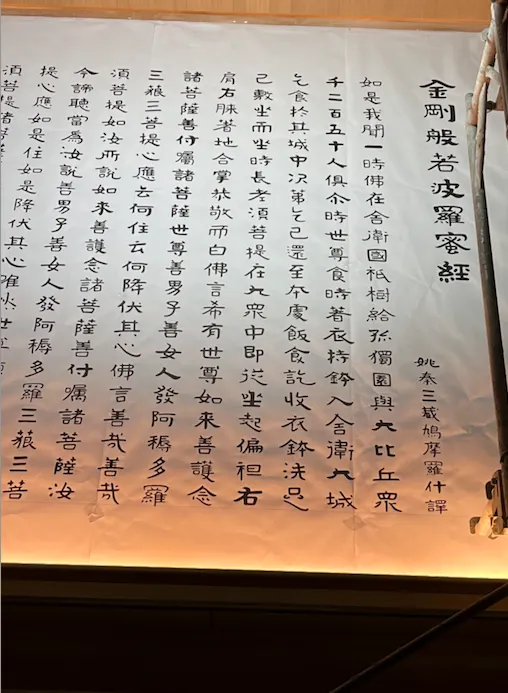 金剛般若波羅蜜經
姚秦三藏鳩摩羅什譯
如是我聞一時佛在舍衛國祇樹給孤獨園與大比丘眾
千二百五十人俱尒時世尊食時著衣持鉢入舍衛大城
乞食於其城中次第乞已還至本處飯食訖收衣鉢洗足
已敷坐而坐時長老須菩提在大眾中即從坐起偏袒右
肩右膝著地合掌恭敬而白佛言希有世尊如來善護念
諸菩薩善付囑諸菩薩世尊善男子善女人發阿耨多羅
三藐三菩提心應云何住云何降伏其心佛言善哉善哉
須菩提如汝所說如來善護念諸菩薩善付囑諸菩薩汝
今諦聽當為汝說善男子善女人發阿耨多羅三藐三菩
提心應如是住如是降伏其心唯然世尊
須菩提諸菩